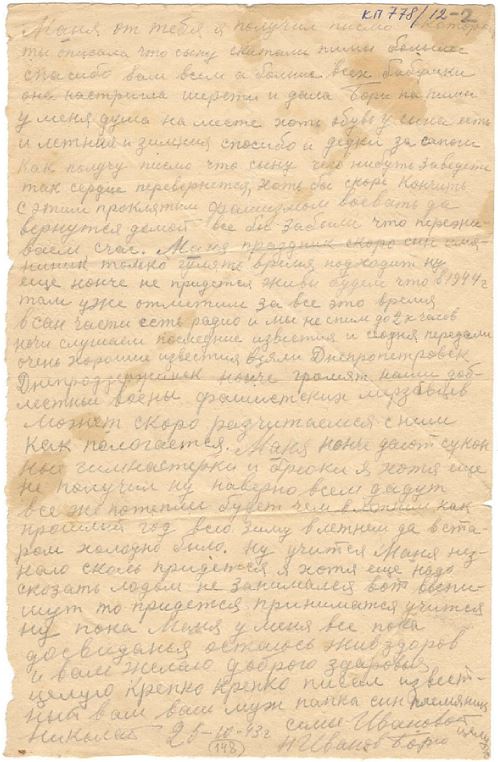 КП 778/12-2
Маня от тебя я получил писмо которо
ты писала что сыну скатали пимы большое
спасибо вам всем а больше всех бабушки
она настригла шерсти и дала Бори на пимы
у меня душа на месте хоть обувь у сына есть
и летния и зимния спасибо и дедки за сапоги
как получу писмо что сыну чего нибуть заведети
так сердце перевернется, хоть бы скоре кончить
с этим проклятым фашизмом воевать да
вернутся домой все бы забыли что пережи
ваем счас. Маня праздник скоро син имя
нинник только гулять время подходит ну
еще нонче не придется живы будем что в 1944 г
там уже отметим за все это время
в сан части есть радио и мы не спим до 2х часов
ночи слушаем последние известия и сёдня передали
очень хорошии известия взяли Днепропетровск
Днепродзержинск нонче громят наши доб-
лестныи воены фашистских мерзавцев
может скоро разчитаемся с ним
как пологается. Маня нонче дают сукон
ныи гимнастерки и брюки я хотя еще
не получил ну наверно всем дадут
все же потепли будет чем в как
прошлый год всю зиму в летнем да в ста-
ром холодно было. ну учится Маня не
знаю сколь придется я хотя еще надо
сказать ладом не занимался вот выпи-
шут то придется приматся учится
ну пока Маня у меня все пока
досвиданья остаюсь жив здоров
и вам желаю доброго здоровья
целую крепко крепко писал извест-
ный вам ваш муж папка син племянник
Николай 25-10-43 г. Семьи Ивановой
(148) Н Иванов Борю целую